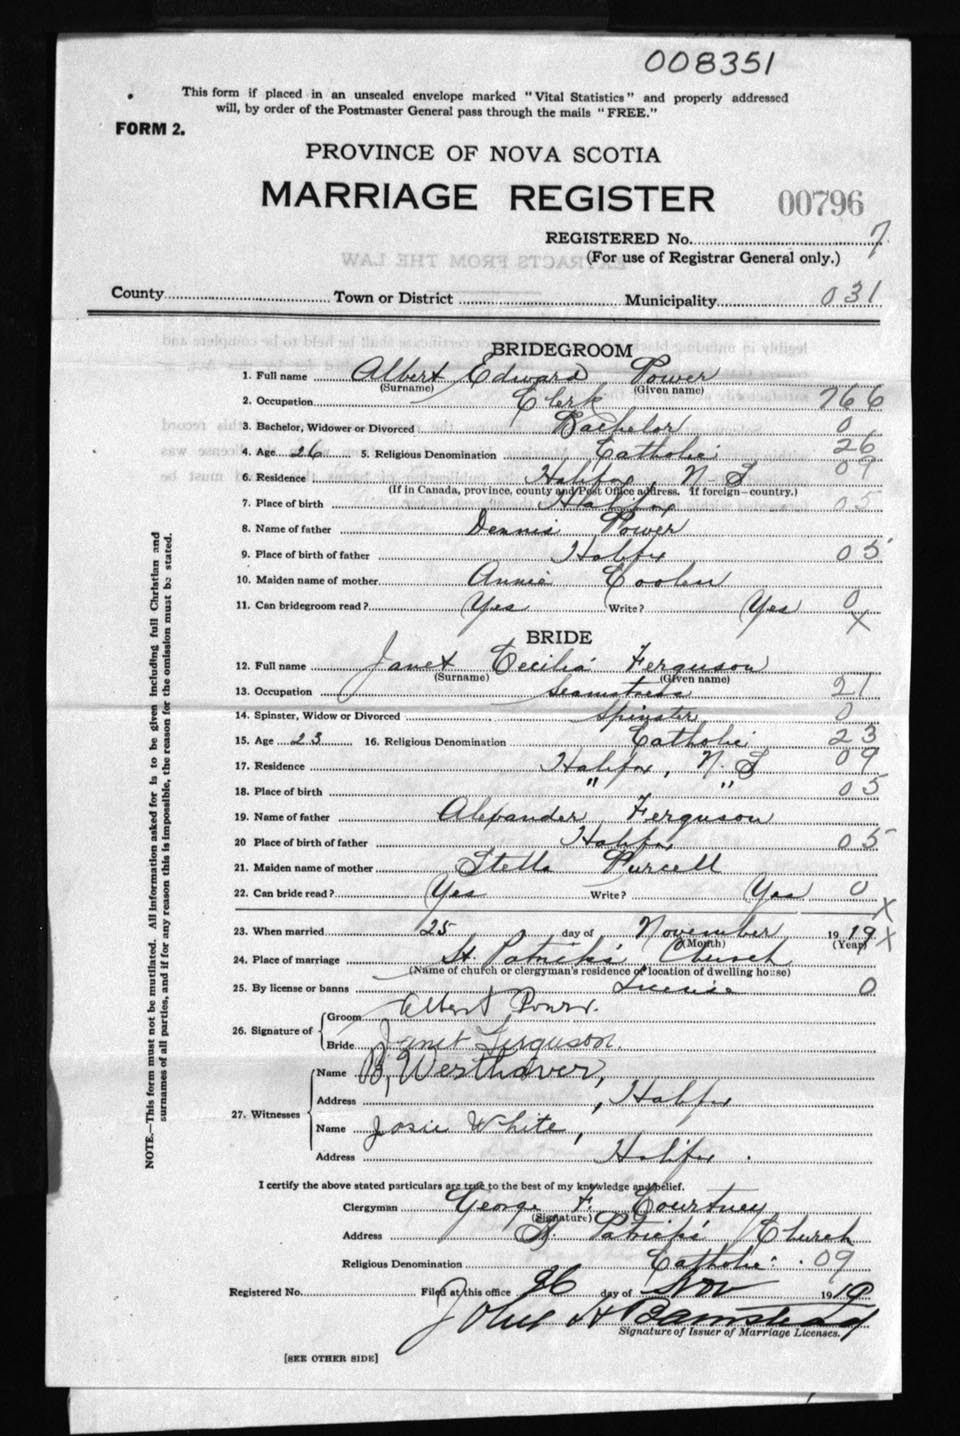 008351
This form if placed in an unsealed envelope marked "Vital Statistics" and properly addressed
will, by order of the Postmaster General pass through the mails "FREE."
FORM 2.
PROVINCE OF NOVA SCOTIA
MARRIAGE REGISTER 00796
REGISTERED No. 7
(For use of Registrar General only.)
County Town or District Municipality 031
BRIDEGROOM
1. Full name Albert Edward Power
(Surname) (Given name)
2. Occupation Clerk 766
3. Bachelor, Widower or Divorced Bachelor 0
4. Age 26 5. Religious Denomination Catholic 26
6. Residence Halifax N S 09
(If in Canada, province, county and Post Office address. If foreign—country.)
7. Place of birth Halifax 05
8. Name of father Dennis Power
9. Place of birth of father Halifax 05
10. Maiden name of mother Annie Coolen
11. Can bridegroom read? Yes Write? Yes 0
X
BRIDE
12. Full name Janet Cecilia Ferguson
(Surname) (Given name)
13. Occupation Seamstress 21
14. Spinster, Widow or Divorced Spinster 0
15. Age 23 16. Religious Denomination Catholic 23
17. Residence Halifax, N. S 09
18. Place of birth " " 05
19. Name of father Alexander Ferguson
20 Place of birth of father Halifax 05
21. Maiden name of mother Stella Purcell
22. Can bride read? Yes Write? Yes 0
X
23. When married 25 day of November 19 19 X
(Month) (Year)
24. Place of marriage St. Patrick's Church
(Name of church or clergyman's residence or location of dwelling house)
25. By license or banns License 0
26. Signature of Groom Albert Power.
Bride Janet Ferguson.
27. Witnesses Name B, Westhaver,
Address , Halifax
Name Josie White,
Address Halifax.
I certify the above stated particulars are true to the best of my knowledge and belief.
Clergyman George F. Courtney
(Signature)
Address St. Patrick's Church
Religious Denomination Catholic 09
Registered No. Filed at this office 26 day of Nov 19 19
John H Barnstead
Signature of Issuer of Marriage Licenses.
[SEE OTHER SIDE]
NOTE.—This form must not be mutilated. All information asked for is to be given including full Christian and
surnames of all parties, and if for any reason this is impossible, the reason for the omission must be stated.